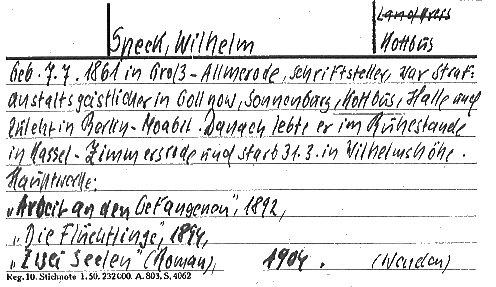 Landkreis
Speck, Wilhelm
Kottbus
Geb. 7.7.1861 in Groß-Allmerode, Schriftsteller, war Straf-
anstaltsgeistlicher in Gollnow, Sonnenburg, Kottbus, Halle und
zuletzt in Berlin-Moabit. Danach lebte er im Ruhestande
in Kassel-Zimmersrode und starb 31.3. in Wilhelmshöhe.
Hauptwerke:
„Arbeit an den Gefangenen", 1892,
„Die Flüchtlinge", 1894,
„Zwei Seelen" (Roman), 1904. (Wenden)
Keg. 10. Stichnote 1. 50. 232000. A. 803. S. 4062